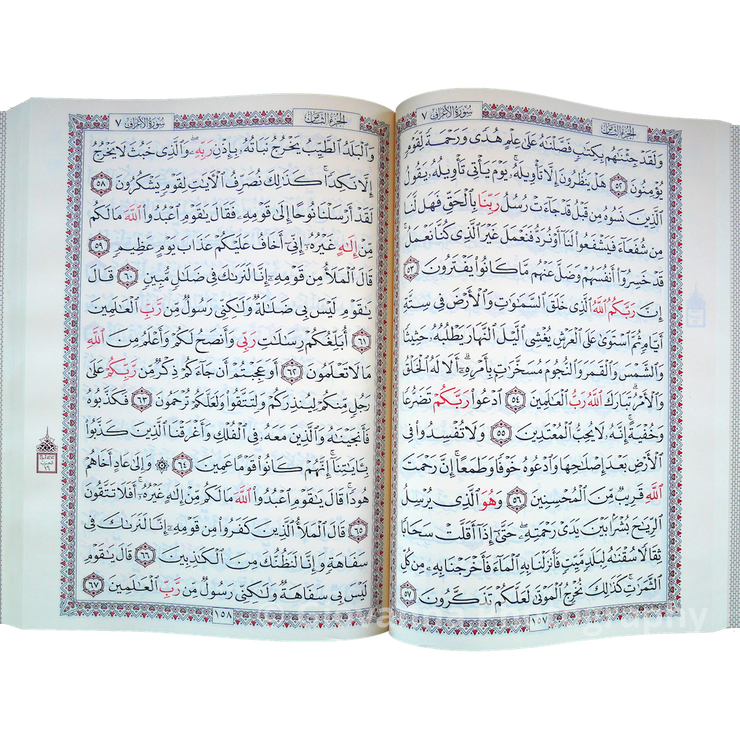 سُورَةُ الأَعْرَافِ ٧
الجُزْءُ الثَّامِنُ
وَلَقَدْ جِئْنَٰهُم بِكِتَٰبٍ فَصَّلْنَٰهُ عَلَىٰ عِلْمٍ هُدًى وَرَحْمَةً لِّقَوْمٍ
يُؤْمِنُونَ ٥٢ هَلْ يَنظُرُونَ إِلَّا تَأْوِيلَهُۥ ۚ يَوْمَ يَأْتِى تَأْوِيلُهُۥ يَقُولُ
ٱلَّذِينَ نَسُوهُ مِن قَبْلُ قَدْ جَآءَتْ رُسُلُ رَبِّنَا بِٱلْحَقِّ فَهَل لَّنَا
مِن شُفَعَآءَ فَيَشْفَعُوا۟ لَنَآ أَوْ نُرَدُّ فَنَعْمَلَ غَيْرَ ٱلَّذِى كُنَّا نَعْمَلُ ۚ
قَدْ خَسِرُوٓا۟ أَنفُسَهُمْ وَضَلَّ عَنْهُم مَّا كَانُوا۟ يَفْتَرُونَ ٥٣
إِنَّ رَبَّكُمُ ٱللَّهُ ٱلَّذِى خَلَقَ ٱلسَّمَٰوَٰتِ وَٱلْأَرْضَ فِى سِتَّةِ
أَيَّامٍ ثُمَّ ٱسْتَوَىٰ عَلَى ٱلْعَرْشِ يُغْشِى ٱلَّيْلَ ٱلنَّهَارَ يَطْلُبُهُۥ حَثِيثًا
وَٱلشَّمْسَ وَٱلْقَمَرَ وَٱلنُّجُومَ مُسَخَّرَٰتٍۭ بِأَمْرِهِۦٓ ۗ أَلَا لَهُ ٱلْخَلْقُ
وَٱلْأَمْرُ ۗ تَبَارَكَ ٱللَّهُ رَبُّ ٱلْعَٰلَمِينَ ٥٤ ٱدْعُوا۟ رَبَّكُمْ تَضَرُّعًا
وَخُفْيَةً ۚ إِنَّهُۥ لَا يُحِبُّ ٱلْمُعْتَدِينَ ٥٥ وَلَا تُفْسِدُوا۟ فِى
ٱلْأَرْضِ بَعْدَ إِصْلَٰحِهَا وَٱدْعُوهُ خَوْفًا وَطَمَعًا ۚ إِنَّ رَحْمَتَ
ٱللَّهِ قَرِيبٌ مِّنَ ٱلْمُحْسِنِينَ ٥٦ وَهُوَ ٱلَّذِى يُرْسِلُ
ٱلرِّيَٰحَ بُشْرًۢا بَيْنَ يَدَىْ رَحْمَتِهِۦ ۖ حَتَّىٰٓ إِذَآ أَقَلَّتْ سَحَابًا
ثِقَالًا سُقْنَٰهُ لِبَلَدٍ مَّيِّتٍ فَأَنزَلْنَا بِهِ ٱلْمَآءَ فَأَخْرَجْنَا بِهِۦ مِن كُلِّ
ٱلثَّمَرَٰتِ ۚ كَذَٰلِكَ نُخْرِجُ ٱلْمَوْتَىٰ لَعَلَّكُمْ تَذَكَّرُونَ ٥٧
١٥٧
سُورَةُ الأَعْرَافِ ٧
الجُزْءُ الثَّامِنُ
وَٱلْبَلَدُ ٱلطَّيِّبُ يَخْرُجُ نَبَاتُهُۥ بِإِذْنِ رَبِّهِۦ ۖ وَٱلَّذِى خَبُثَ لَا يَخْرُجُ
إِلَّا نَكِدًا ۚ كَذَٰلِكَ نُصَرِّفُ ٱلْءَايَٰتِ لِقَوْمٍ يَشْكُرُونَ ٥٨
لَقَدْ أَرْسَلْنَا نُوحًا إِلَىٰ قَوْمِهِۦ فَقَالَ يَٰقَوْمِ ٱعْبُدُوا۟ ٱللَّهَ مَا لَكُم
مِّنْ إِلَٰهٍ غَيْرُهُۥٓ إِنِّىٓ أَخَافُ عَلَيْكُمْ عَذَابَ يَوْمٍ عَظِيمٍ ٥٩
قَالَ ٱلْمَلَأُ مِن قَوْمِهِۦٓ إِنَّا لَنَرَىٰكَ فِى ضَلَٰلٍ مُّبِينٍ ٦٠ قَالَ
يَٰقَوْمِ لَيْسَ بِى ضَلَٰلَةٌ وَلَٰكِنِّى رَسُولٌ مِّن رَّبِّ ٱلْعَٰلَمِينَ
٦١ أُبَلِّغُكُمْ رِسَٰلَٰتِ رَبِّى وَأَنصَحُ لَكُمْ وَأَعْلَمُ مِنَ ٱللَّهِ
مَا لَا تَعْلَمُونَ ٦٢ أَوَعَجِبْتُمْ أَن جَآءَكُمْ ذِكْرٌ مِّن رَّبِّكُمْ عَلَىٰ
رَجُلٍ مِّنكُمْ لِيُنذِرَكُمْ وَلِتَتَّقُوا۟ وَلَعَلَّكُمْ تُرْحَمُونَ ٦٣ فَكَذَّبُوهُ
فَأَنجَيْنَٰهُ وَٱلَّذِينَ مَعَهُۥ فِى ٱلْفُلْكِ وَأَغْرَقْنَا ٱلَّذِينَ كَذَّبُوا۟
بِـَٔايَٰتِنَآ ۚ إِنَّهُمْ كَانُوا۟ قَوْمًا عَمِينَ ٦٤ ۞ وَإِلَىٰ عَادٍ أَخَاهُمْ
هُودًا ۗ قَالَ يَٰقَوْمِ ٱعْبُدُوا۟ ٱللَّهَ مَا لَكُم مِّنْ إِلَٰهٍ غَيْرُهُۥٓ ۚ أَفَلَا تَتَّقُونَ
٦٥ قَالَ ٱلْمَلَأُ ٱلَّذِينَ كَفَرُوا۟ مِن قَوْمِهِۦٓ إِنَّا لَنَرَىٰكَ فِى
سَفَاهَةٍ وَإِنَّا لَنَظُنُّكَ مِنَ ٱلْكَٰذِبِينَ ٦٦ قَالَ يَٰقَوْمِ
لَيْسَ بِى سَفَاهَةٌ وَلَٰكِنِّى رَسُولٌ مِّن رَّبِّ ٱلْعَٰلَمِينَ ٦٧
١٥٨